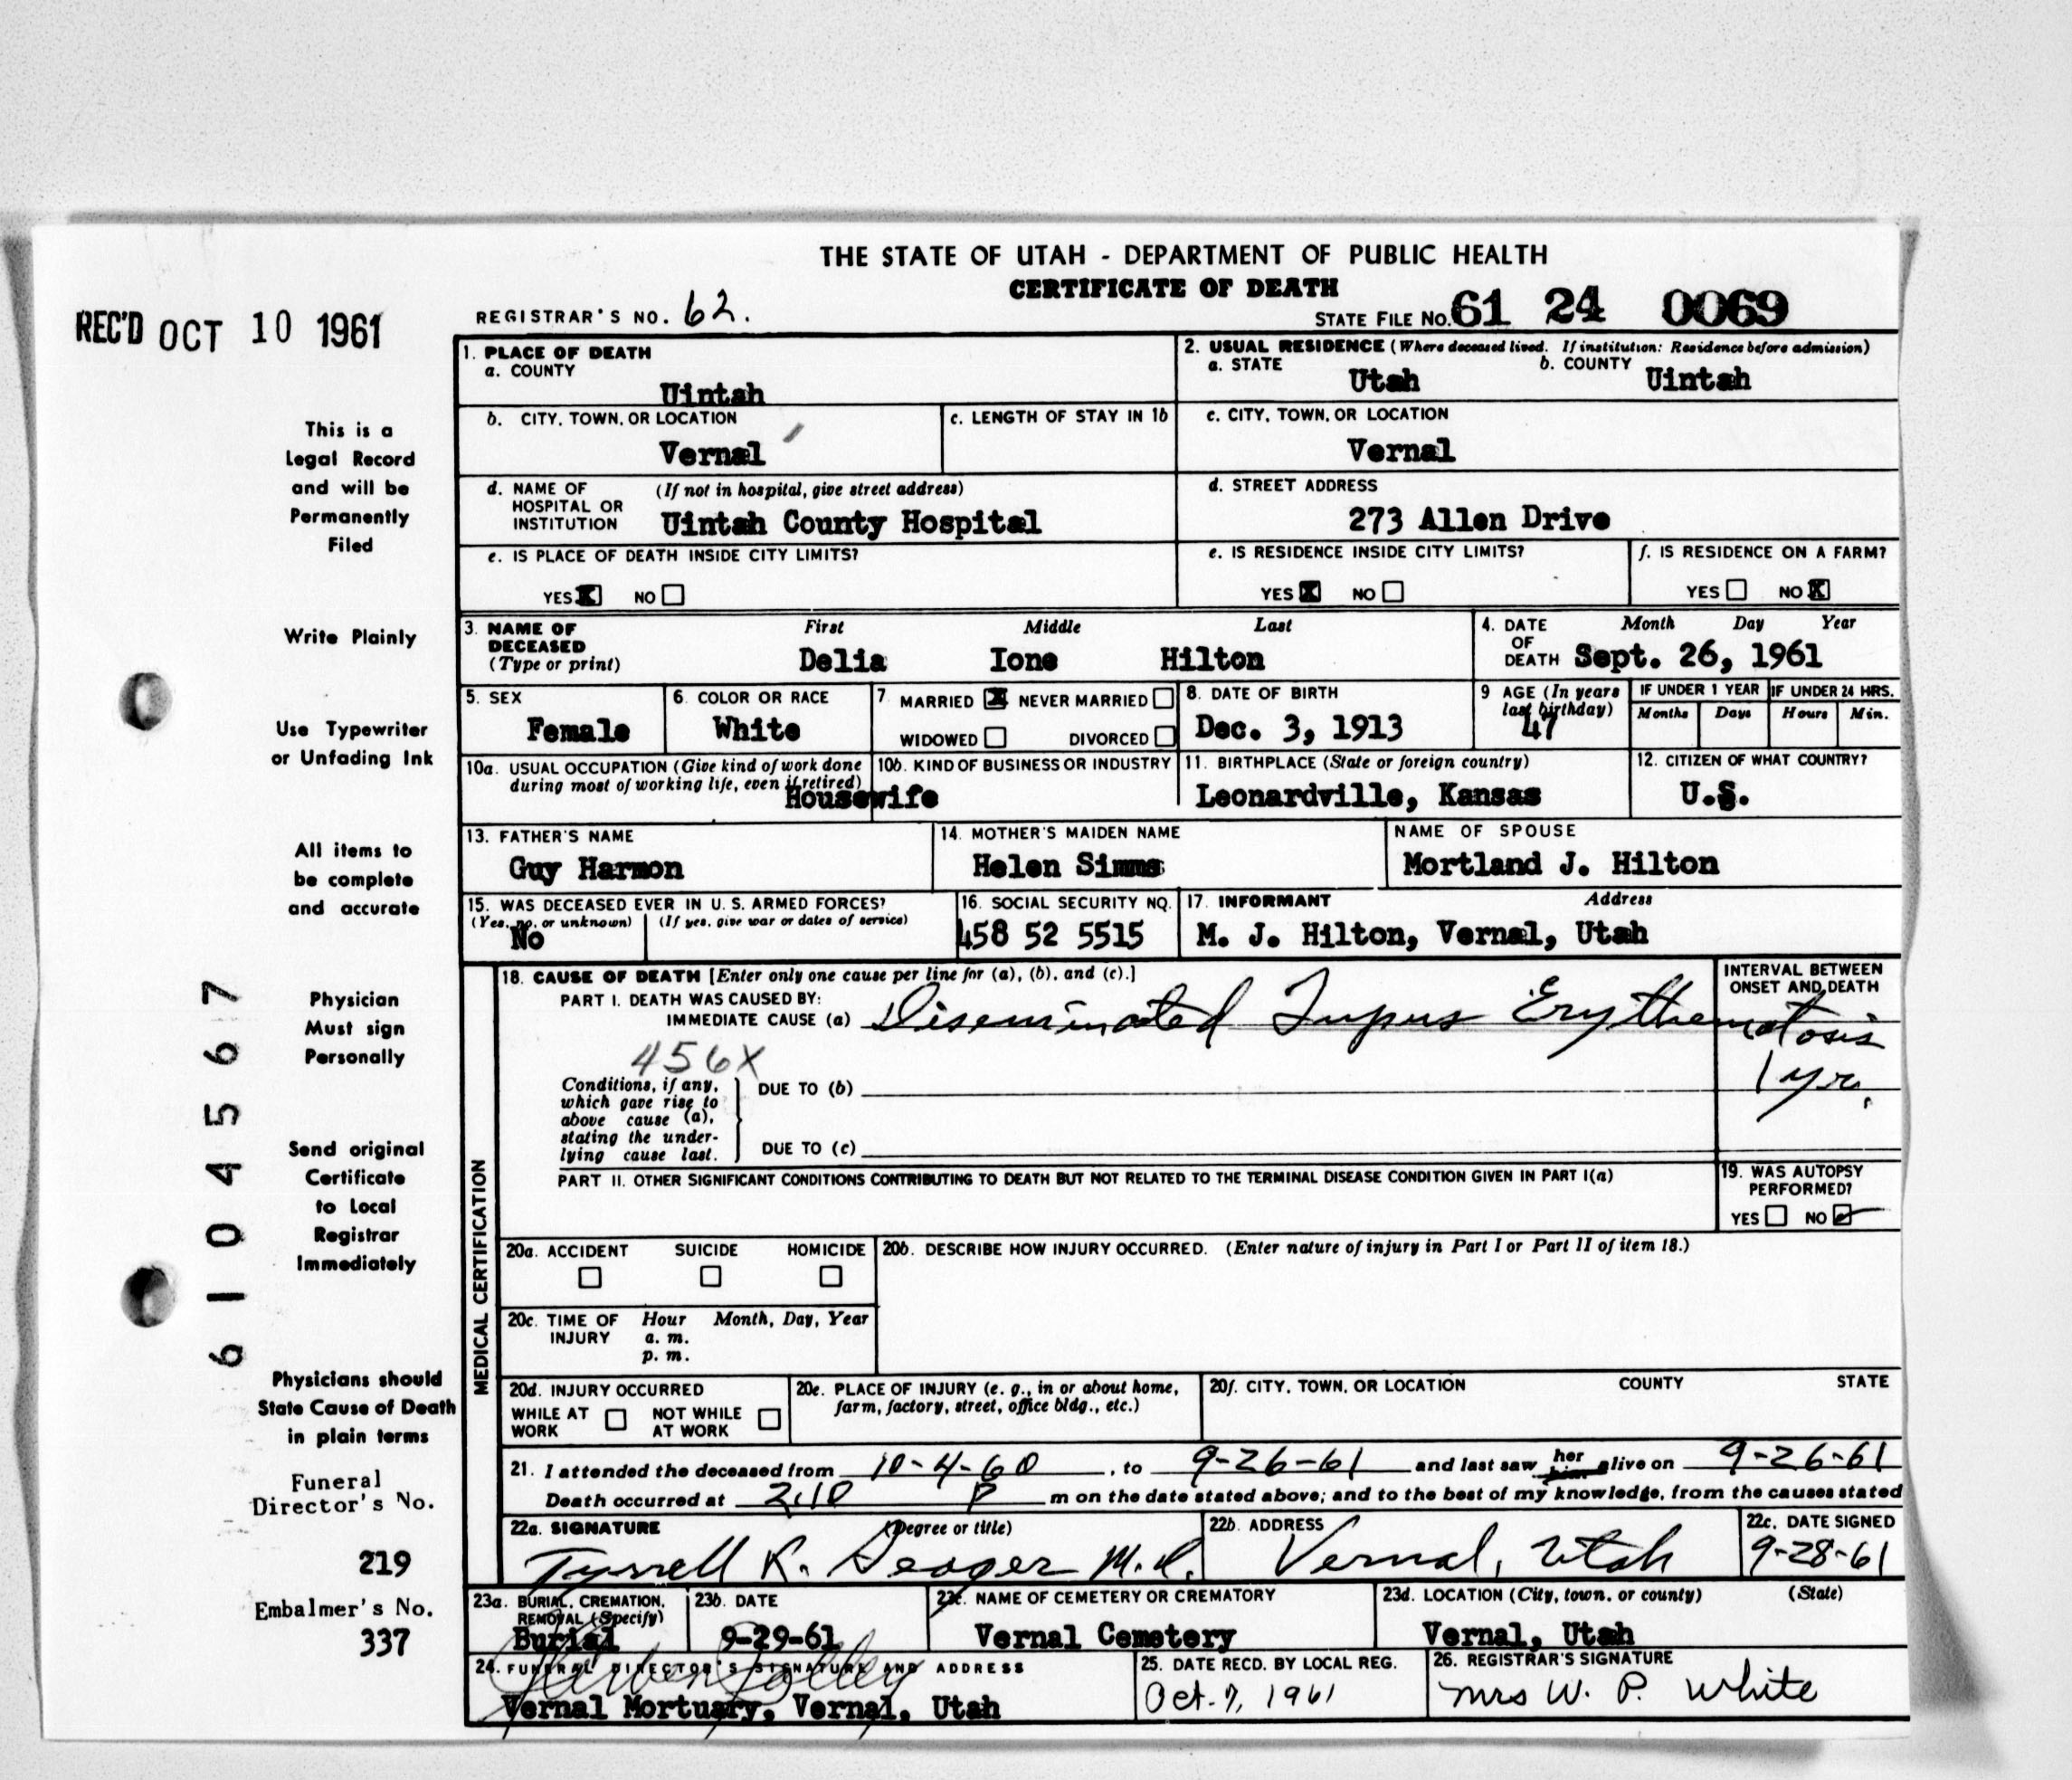 THE STATE OF UTAH - DEPARTMENT OF PUBLIC HEALTH
CERTIFICATE OF DEATH
REC'D OCT 10 1961
REGISTRAR'S NO. 62.
STATE FILE NO. 61 24 0069
This is a
Legal Record
and will be
Permanently
Filed
Write Plainly
Use Typewriter
or Unfading Ink
All items to
be complete
and accurate
Physician
Must sign
Personally
Send original
Certificate
to Local
Registrar
Immediately
Physicians should
State Cause of Death
in plain terms
Funeral
Director's No.
219
Embalmer's No.
337
6104567
1. PLACE OF DEATH
a. COUNTY
Uintah
2. USUAL RESIDENCE (Where deceased lived. If institution: Residence before admission)
a. STATE Utah b. COUNTY Uintah
b. CITY, TOWN, OR LOCATION
Vernal
c. LENGTH OF STAY IN 1b
c. CITY, TOWN, OR LOCATION
Vernal
d. NAME OF (If not in hospital, give street address)
HOSPITAL OR
INSTITUTION Uintah County Hospital
d. STREET ADDRESS
273 Allen Drive
e. IS PLACE OF DEATH INSIDE CITY LIMITS?
YES X NO
e. IS RESIDENCE INSIDE CITY LIMITS?
YES X NO
f. IS RESIDENCE ON A FARM?
YES NO X
3. NAME OF DECEASED (Type or print)
First Middle Last
Delia Ione Hilton
4. DATE OF DEATH
Month Day Year
Sept. 26, 1961
5. SEX
Female
6. COLOR OR RACE
White
7 MARRIED X NEVER MARRIED
WIDOWED DIVORCED
8. DATE OF BIRTH
Dec. 3, 1913
9 AGE (In years
last birthday)
47
IF UNDER 1 YEAR IF UNDER 24 HRS.
Months Days Hours Min.
10a. USUAL OCCUPATION (Give kind of work done
during most of working life, even if retired)
Housewife
10b. KIND OF BUSINESS OR INDUSTRY
11. BIRTHPLACE (State or foreign country)
Leonardville, Kansas
12. CITIZEN OF WHAT COUNTRY?
U.S.
13. FATHER'S NAME
Guy Harmon
14. MOTHER'S MAIDEN NAME
Helen Simms
NAME OF SPOUSE
Mortland J. Hilton
15. WAS DECEASED EVER IN U. S. ARMED FORCES?
(Yes, no, or unknown) (If yes, give war or dates of service)
No
16. SOCIAL SECURITY NO.
458 52 5515
17. INFORMANT Address
M. J. Hilton, Vernal, Utah
MEDICAL CERTIFICATION
18. CAUSE OF DEATH [Enter only one cause per line for (a), (b), and (c).]
INTERVAL BETWEEN
ONSET AND DEATH
PART I. DEATH WAS CAUSED BY:
IMMEDIATE CAUSE (a) Diseminated Lupus Erythematosis
1 yr.
456X
Conditions, if any,
which gave rise to
above cause (a),
stating the under-
lying cause last.
DUE TO (b)
DUE TO (c)
PART II. OTHER SIGNIFICANT CONDITIONS CONTRIBUTING TO DEATH BUT NOT RELATED TO THE TERMINAL DISEASE CONDITION GIVEN IN PART I(a)
19. WAS AUTOPSY
PERFORMED?
YES NO
20a. ACCIDENT SUICIDE HOMICIDE
20b. DESCRIBE HOW INJURY OCCURRED. (Enter nature of injury in Part I or Part II of item 18.)
20c. TIME OF INJURY
Hour Month, Day, Year
a. m.
p. m.
20d. INJURY OCCURRED
WHILE AT WORK NOT WHILE AT WORK
20e. PLACE OF INJURY (e. g., in or about home,
farm, factory, street, office bldg., etc.)
20f. CITY, TOWN, OR LOCATION COUNTY STATE
21. I attended the deceased from 10-4-60, to 9-26-61 and last saw her him alive on 9-26-61
Death occurred at 2:10 P m on the date stated above; and to the best of my knowledge, from the causes stated
22a. SIGNATURE (Degree or title)
Tyrrell R. Seager M.D.
22b. ADDRESS
Vernal, Utah
22c. DATE SIGNED
9-28-61
23a. BURIAL, CREMATION,
REMOVAL (Specify)
Burial
23b. DATE
9-29-61
23c. NAME OF CEMETERY OR CREMATORY
Vernal Cemetery
23d. LOCATION (City, town, or county) (State)
Vernal, Utah
24. FUNERAL DIRECTOR'S SIGNATURE AND ADDRESS
Vernal Mortuary, Vernal, Utah
25. DATE RECD. BY LOCAL REG.
Oct. 7, 1961
26. REGISTRAR'S SIGNATURE
Mrs W. P. White